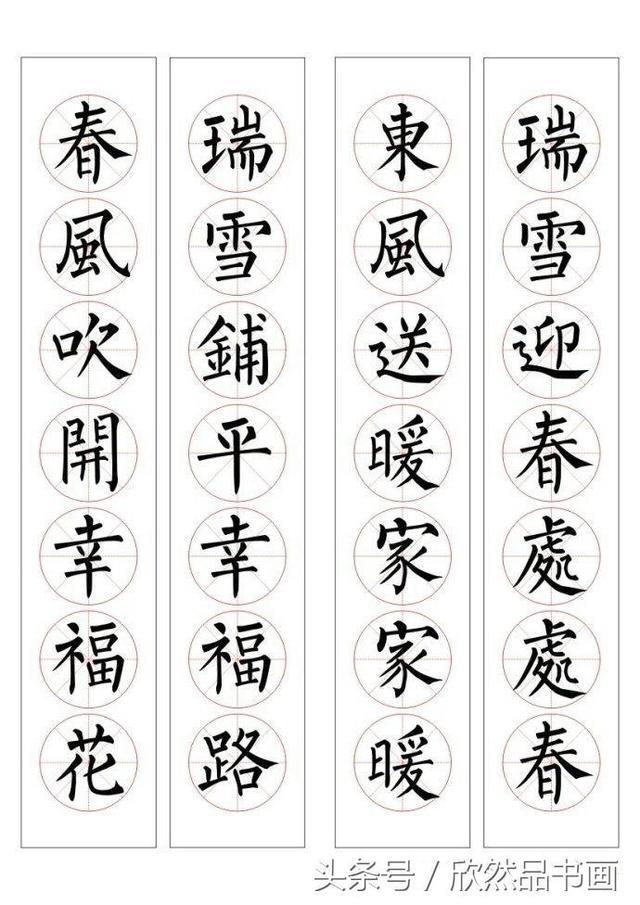 瑞雪迎春處處春
東風送暖家家暖
瑞雪鋪平幸福路
春風吹開幸福花
头条号 / 欣然品书画